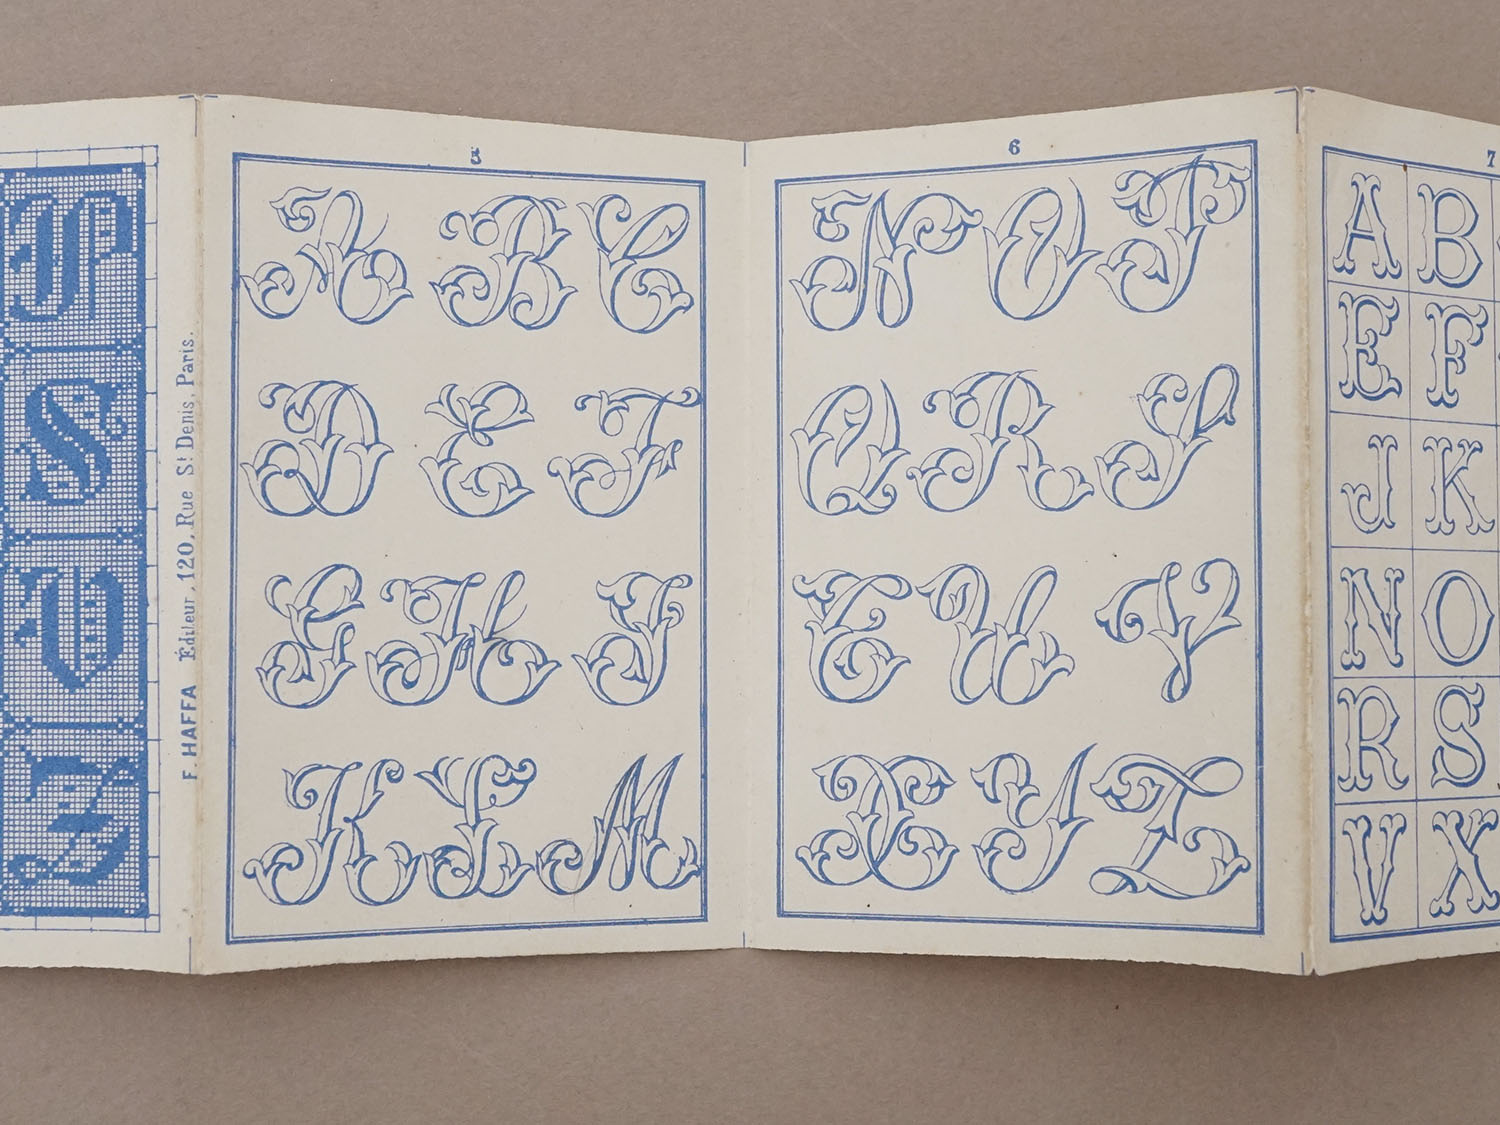 P
S
V
Z
F. HAFFA Éditeur, 120, Rue St Denis, Paris.
5
A B C
D E F
G H J
K L M
6
N O P
Q R S
T U V
X Y Z
7
A B
E F
J K
N O
R S
V X